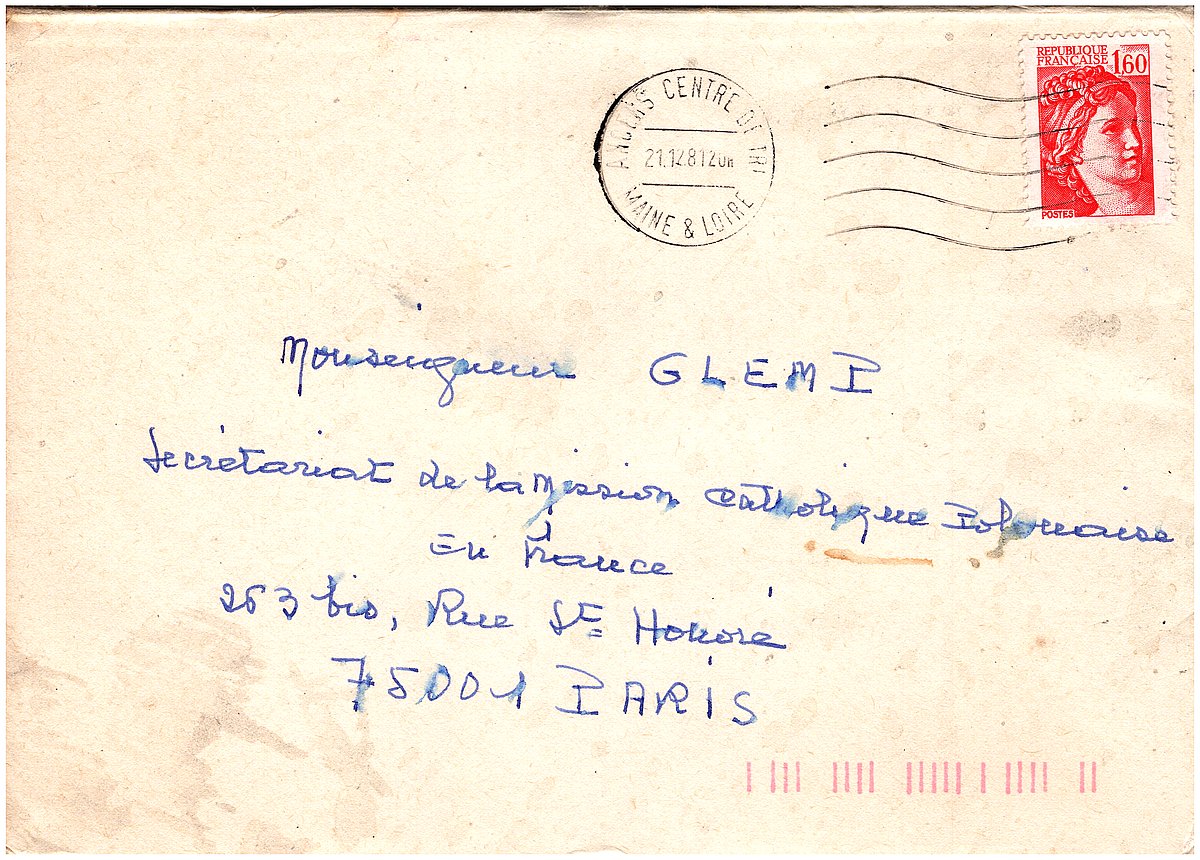 ANGERS CENTRE DE TRI
21.12 81 20H
MAINE & LOIRE
REPUBLIQUE
FRANÇAISE 1,60
POSTES
Monseigneur GLEMP
Secrétariat de la Mission Catholique Polonaise
En France
263 bis, Rue St Honoré
75001 PARIS